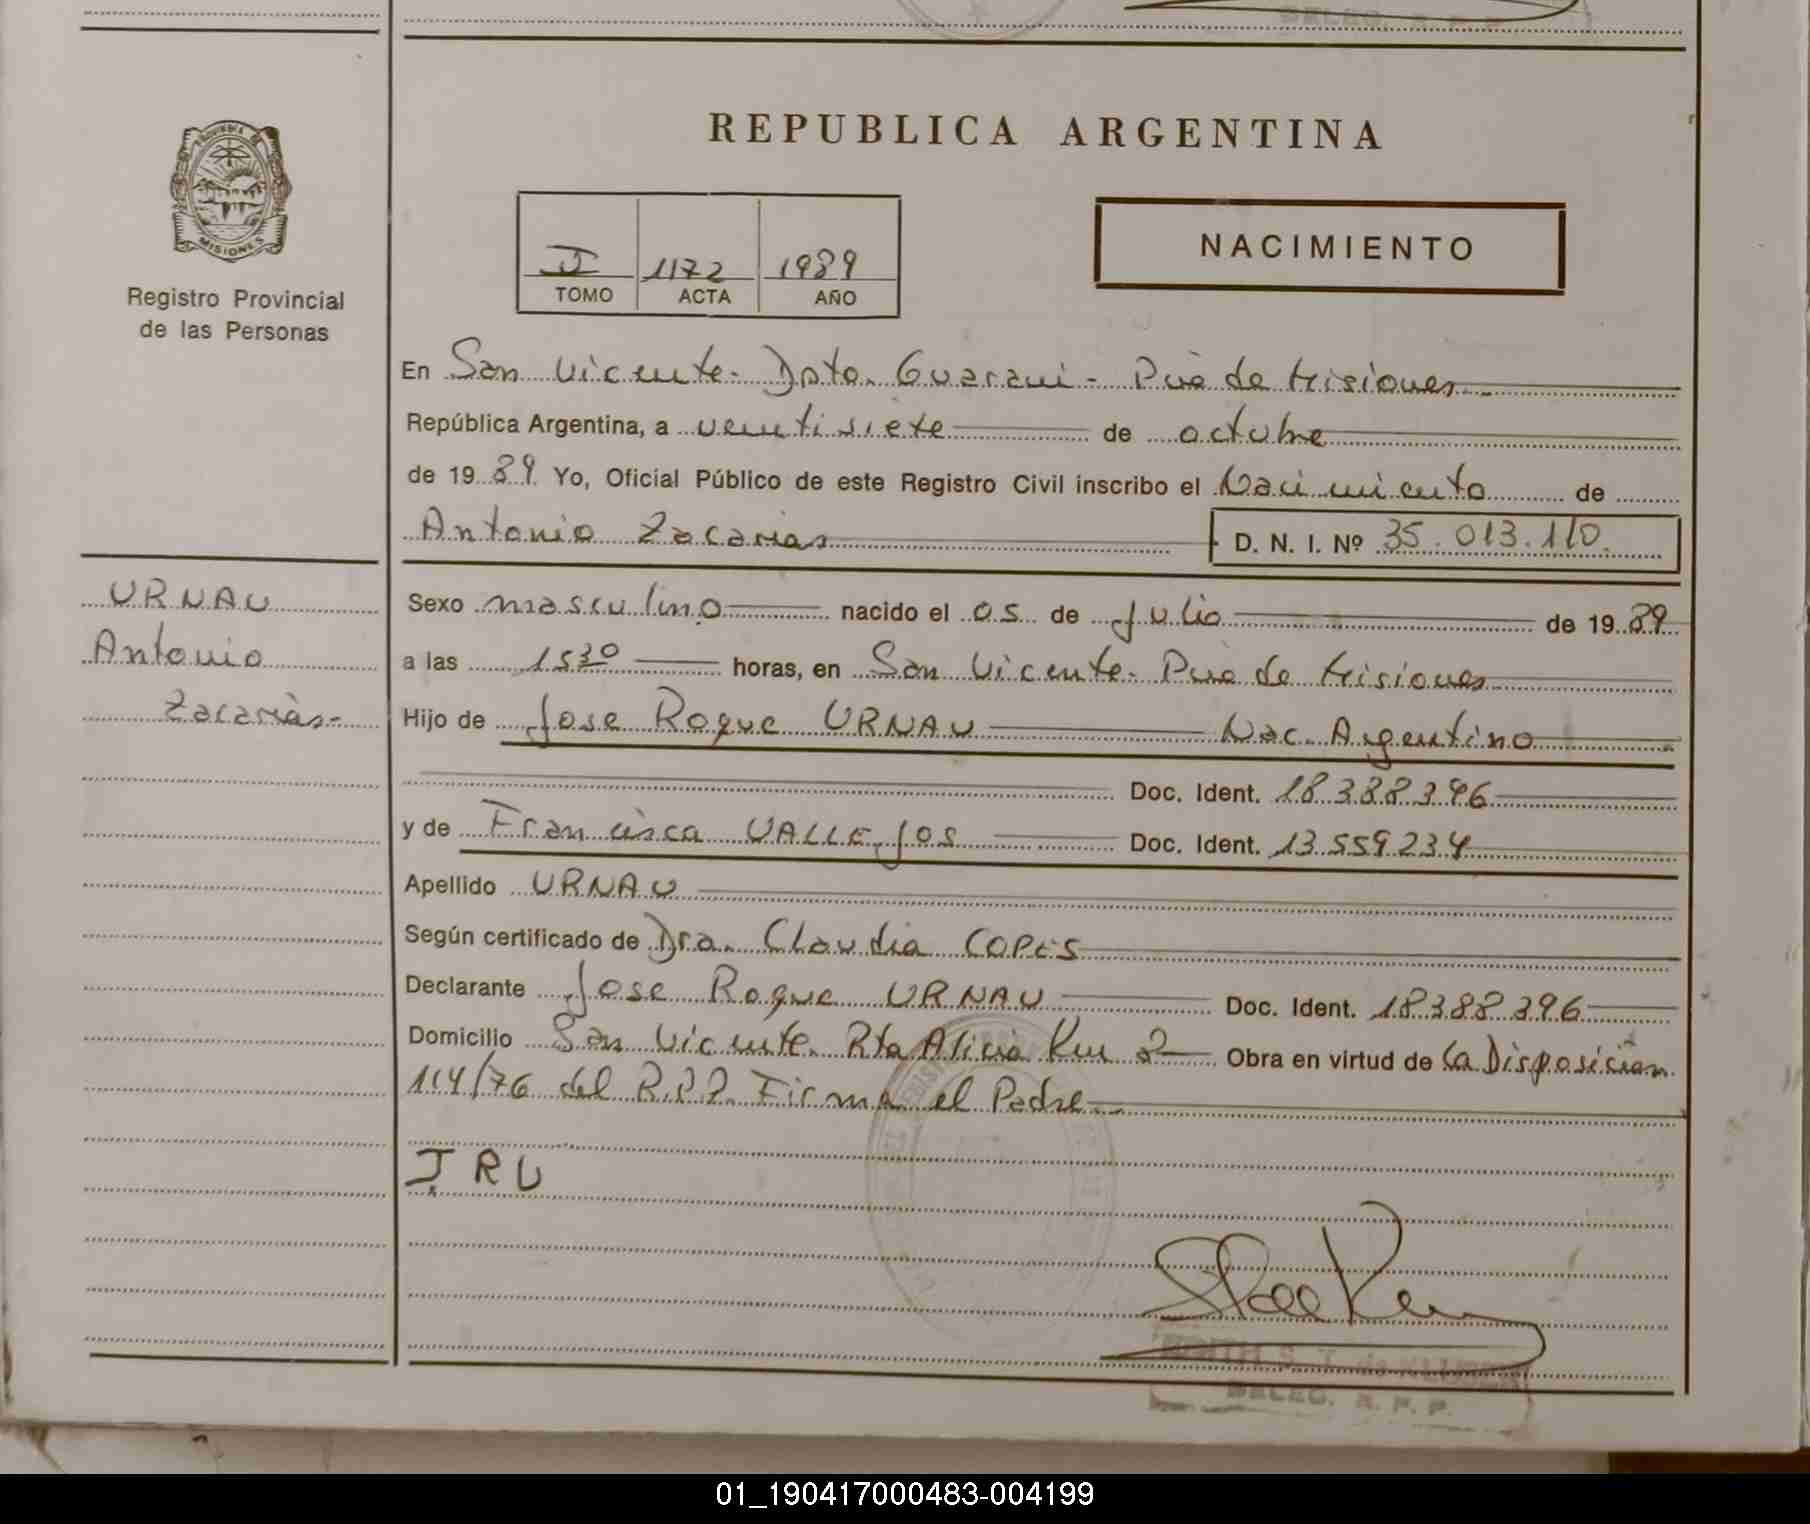 REPUBLICA ARGENTINA
MISIONES
Registro Provincial
de las Personas
1172 1989
TOMO ACTA AÑO
NACIMIENTO
En San Vicente - Dpto. Guarani - Pcia de Misiones
República Argentina, a veintisiete de octubre
de 19 89 Yo, Oficial Público de este Registro Civil inscribo el Nacimiento de
Antonio Zacarias D. N. I. Nº 35.013.110
URNAU
Antonio
Zacarias-
Sexo masculino nacido el 05 de Julio de 19 89
a las 15 30 horas, en San Vicente - Pcia de Misiones
Hijo de Jose Roque URNAU Nac. Argentino
Doc. Ident. 18.388.396
y de Francisca VALLEJOS Doc. Ident. 13.559.234
Apellido URNAU
Según certificado de Dra. Claudia COPES
Declarante Jose Roque URNAU Doc. Ident. 18.388.396
Domicilio San Vicente. Rta Alicia Km 2 Obra en virtud de la Disposicion
114/76 del R.P.P. Firma el Padre
J R U
DELEG. R. P. P.
01_190417000483-004199